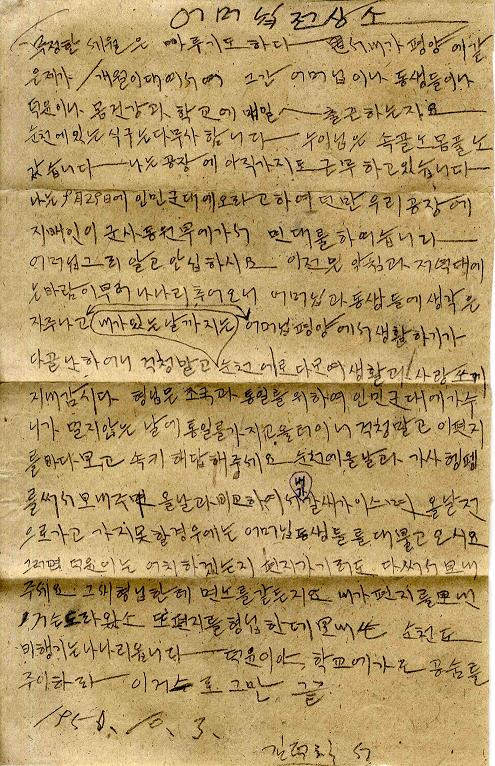 어머님전상소
극정할 세월은 빠루기도 하다 내가 평양에 갈
은제가 1개월이 대여서며 그간 어머님이나 동생들이나
덕윤이나 몸건강과 학교에 매일 출근하는지요
순천에있는 식구는 다무사 합니다 누이님은 속골노 몸플노
갔습니다 나는 공장에 아직가지도 근무하고있습니다
나는 9月29日에 인민군대에 오라고 하여 떤만 우리 공장에
지배인이 군사동원부에가서 민대를 하여습니다
어머님 그리 알고 안심하시요 이전문 아침과 저녁대에
는 바람이 부러 나나리 추어오니 어머님과 동생들에 생각은
자주나고 내가있는날까지는 어머님 평양에서 생활하기가
다끝난하어니 걱청말고 순천에로 다모여 생활과 사랑
지내갑시다 형님믄 조국과 통일를 위하여 인민군대에가수
니가 멀지않는 날에 통일를가지고올터이니 걱청말고 이편지
를바다보고 속키 해답해주세요 순천에올날과 가사형펜
를써서 보내주면 올날과 비교하여서 내가 갈새가이스면 올날전
으로가고 가지못할경우에는 어머님 동생들를 대불고 오시요
그러면 덕윤이는 어치하겠는지 편지가기러도 다써서 보내
주세요 그와 형님한테 면노를갈든지요 내가 편지를보낸
거는 도라왔소 또편지를 형님한데 보내 순천도
비행기는 나나리옵니다 덕윤이아, 학교에가 공습를
주이하라 이거스로 그만 끝
1950. 10. 3.
서